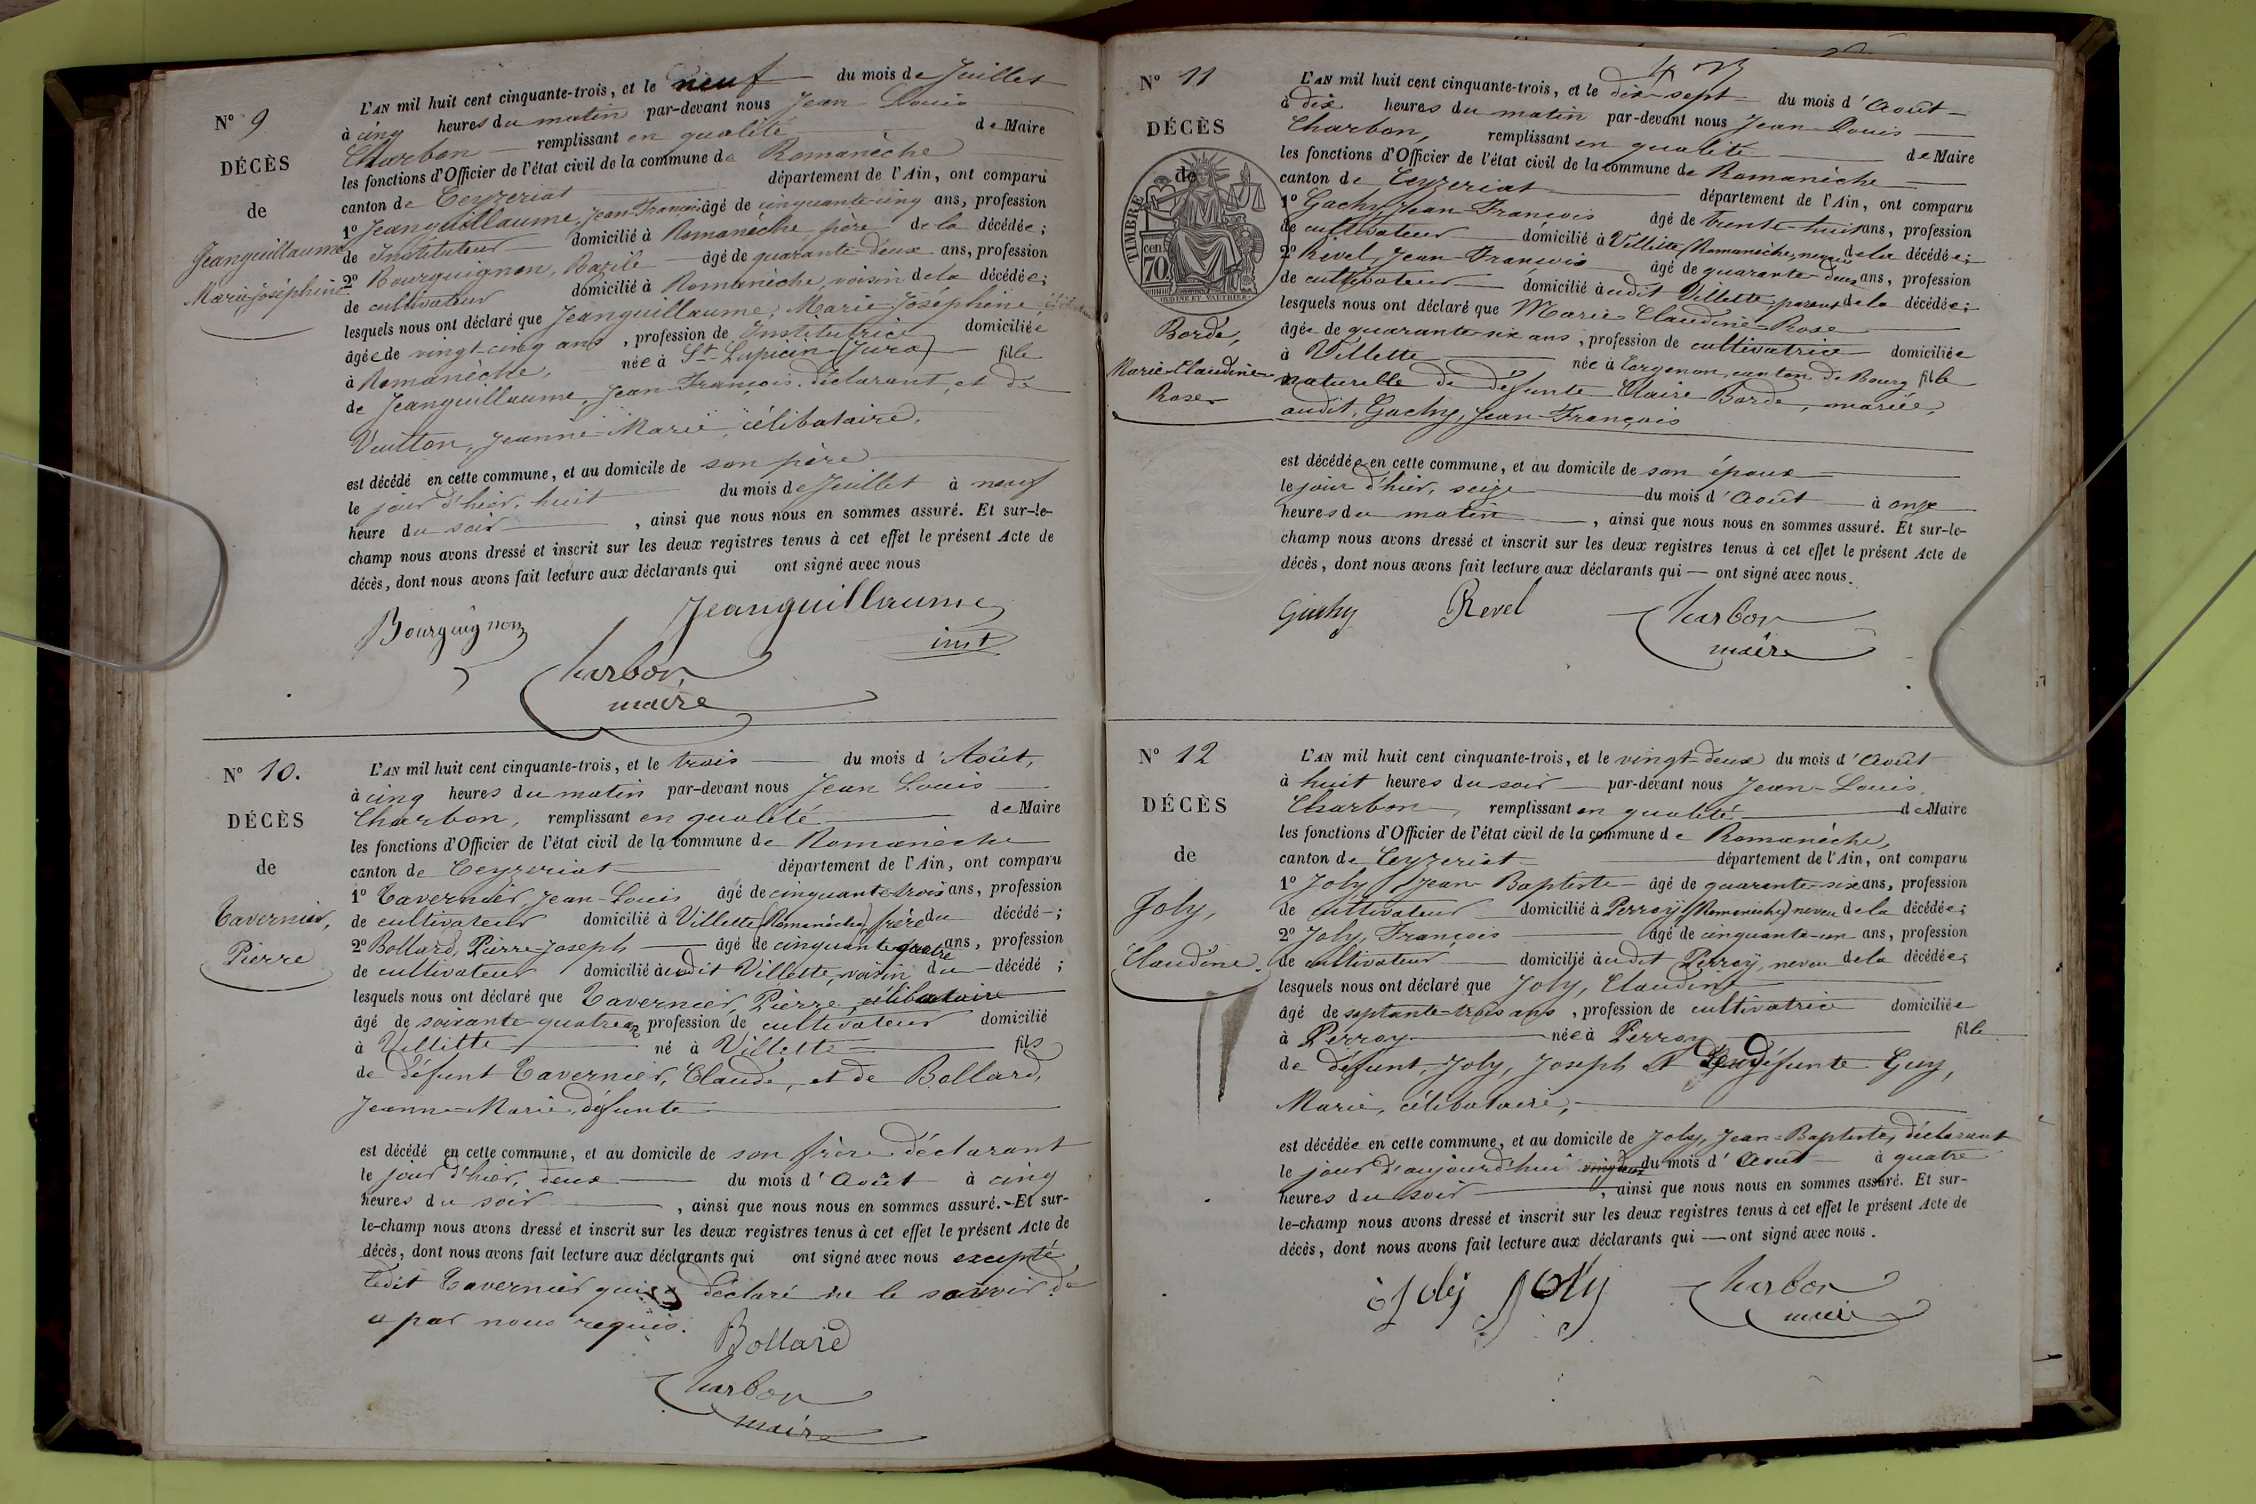 N° 9
DÉCÈS
de
Jeanguillaume
Marie Joséphine
L'AN mil huit cent cinquante-trois, et le neuf du mois de Juillet
à cinq heures du matin par-devant nous Jean Louis
Charbon remplissant en qualité de Maire
les fonctions d'Officier de l'état civil de la commune de Romanèche
canton de Ceyzeriat département de l'Ain, ont comparu
1° Jeanguillaume, Jean-François âgé de cinquante-cinq ans, profession
de Instituteur domicilié à Romanèche père de la décédée;
2° Bourguignon, Bazile âgé de quarante-deux ans, profession
de cultivateur domicilié à Romanèche, voisin de la décédée;
lesquels nous ont déclaré que Jeanguillaume, Marie-Joséphine
âgée de vingt-cinq ans, profession de Institutrice domiciliée
à Romanèche, née à St Lupicin (Jura) fille
de Jeanguillaume, Jean-François, déclarant, et de
Vuitton, Jeanne-Marie, célibataire,
est décédé en cette commune, et au domicile de son père
le jour d'hier, huit du mois de Juillet à neuf
heure du soir, ainsi que nous nous en sommes assuré. Et sur-le-
champ nous avons dressé et inscrit sur les deux registres tenus à cet effet le présent Acte de
décès, dont nous avons fait lecture aux déclarants qui ont signé avec nous
Bourguignon Jeanguillaume
inst
Charbon
maire
N° 10.
DÉCÈS
de
Tavernier,
Pierre
L'AN mil huit cent cinquante-trois, et le trois du mois d'Août,
à cinq heures du matin par-devant nous Jean Louis
Charbon, remplissant en qualité de Maire
les fonctions d'Officier de l'état civil de la commune de Romanèche
canton de Ceyzeriat département de l'Ain, ont comparu
1° Tavernier, Jean-Louis âgé de cinquante-trois ans, profession
de cultivateur domicilié à Villette (Romanèche) frère du décédé;
2° Bollard, Pierre-Joseph âgé de cinquante quatre ans, profession
de cultivateur domicilié audit Villette, voisin du décédé;
lesquels nous ont déclaré que Tavernier, Pierre, célibataire
âgé de soixante-quatre ans profession de cultivateur domicilié
à Villette né à Villette fils
de défunt Tavernier, Claude, et de Bollard,
Jeanne-Marie, défunte
est décédé en cette commune, et au domicile de son frère déclarant
le jour d'hier, deux du mois d'Août à cinq
heures du soir, ainsi que nous nous en sommes assuré. Et sur-
le-champ nous avons dressé et inscrit sur les deux registres tenus à cet effet le présent Acte de
décès, dont nous avons fait lecture aux déclarants qui ont signé avec nous excepté
ledit Tavernier qui a déclaré ne le savoir de
a par nous requis.
Bollard
Charbon
maire
N° 11
DÉCÈS
de
TIMBRE
cen
70
Borde,
Marie-Claudine
Rose
L'AN mil huit cent cinquante-trois, et le dix-sept du mois d'Août
à dix heures du matin par-devant nous Jean-Louis
Charbon, remplissant en qualité de Maire
les fonctions d'Officier de l'état civil de la commune de Romanèche
canton de Ceyzeriat département de l'Ain, ont comparu
1° Gachy, Jean-François âgé de trente-huit ans, profession
de cultivateur domicilié à Villette (Romanèche) neveu de la décédée;
2° Revel, Jean-François âgé de quarante-deux ans, profession
de cultivateur domicilié audit Villette parent de la décédée;
lesquels nous ont déclaré que Marie-Claudine-Rose
âgée de quarante-six ans, profession de cultivatrice domiciliée
à Villette née à Corgenon, canton de Bourg fille
naturelle de défunte Claire Borde, mariée,
audit, Gachy, Jean-François
est décédée en cette commune, et au domicile de son époux
le jour d'hier, seize du mois d'Août à onze
heures du matin, ainsi que nous nous en sommes assuré. Et sur-le-
champ nous avons dressé et inscrit sur les deux registres tenus à cet effet le présent Acte de
décès, dont nous avons fait lecture aux déclarants qui — ont signé avec nous.
Gachy Revel Charbon
maire
N° 12
DÉCÈS
de
Joly,
Claudine.
L'AN mil huit cent cinquante-trois, et le vingt-deux du mois d'Août
à huit heures du soir par-devant nous Jean-Louis
Charbon, remplissant en qualité de Maire
les fonctions d'Officier de l'état civil de la commune de Romanèche,
canton de Ceyzeriat département de l'Ain, ont comparu
1° Joly, Jean-Baptiste âgé de quarante-six ans, profession
de cultivateur domicilié à Perroy (Romanèche) neveu de la décédée;
2° Joly, François âgé de cinquante-un ans, profession
de cultivateur domicilié audit Perroy, neveu de la décédée;
lesquels nous ont déclaré que Joly, Claudine
âgé de septante-trois ans, profession de cultivatrice domiciliée
à Perroy née à Perroy fille
de défunt, Joly, Joseph et de défunte Guy,
Marie, célibataire,
est décédée en cette commune, et au domicile de Joly, Jean-Baptiste, déclarant
le jour d'aujourd'hui vingt deux du mois d'Août à quatre
heures du soir, ainsi que nous nous en sommes assuré. Et sur-
le-champ nous avons dressé et inscrit sur les deux registres tenus à cet effet le présent Acte de
décès, dont nous avons fait lecture aux déclarants qui — ont signé avec nous.
Joly Joly Charbon
maire